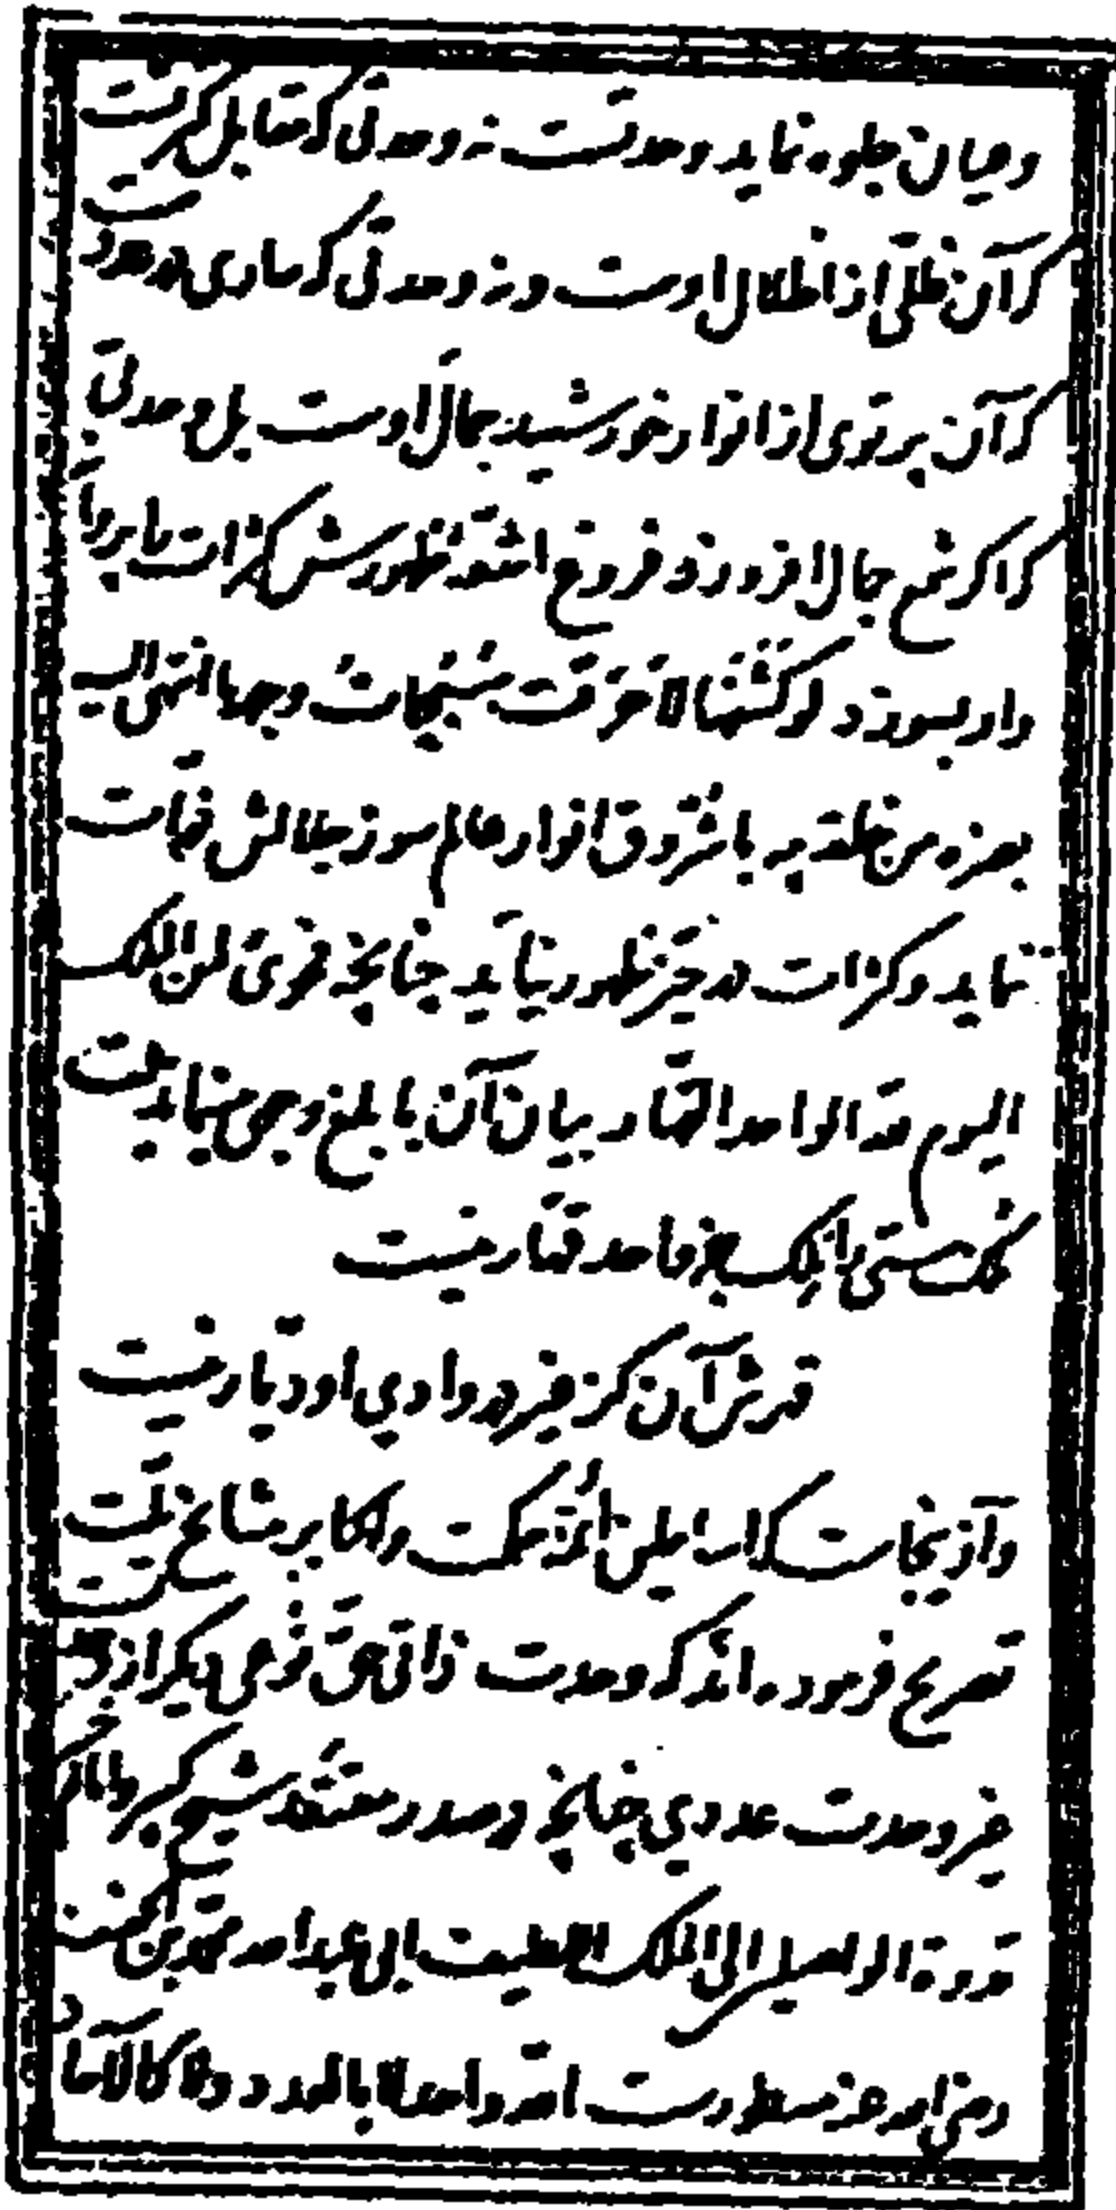 وعیان جلوه نماید وحدتست نه وحدتی که مقابل کثرت است
که آن ظلی از اظلال اوست و نه وحدتی که ساری در
که آن پرتوی از انوار خورشید جمال اوست بل وحدتی
که اگر شمع جمال افروزد فروغ اشعه ظهورش کثرات را پروانه
وار بسوزد لو کشفها لاحرقت سبحات وجهه ما انتهی الیه
بصره من خلقه چه با شروق انوار عالم سوز جلالش
نماید و کثرات در حیز ظهور نیاید چنانچه فحوی لمن الملک
الیوم لله الواحد القهار بیان آن بابلغ وجهی مینماید بیت
ملک هستی را ملک جز واحد قهار نیست
آن کز غیر در وادی او دیار نیست
و از اینجاست که اساطین ائمه حکمت و اکابر مشایخ ملت
تصریح فرموده‌اند که وحدت ذاتی حق نوعی دیگر از وحدتست
غیر وحدت عددی چنانچه در صدر معتقد شیخ کبیر و امام
قدوة الواصلین الی الملک اللطیف ابی عبدالله محمد بن الخفیف
رضی الله عنه مسطورست الله واحد لا بالعدد ولا کالآحاد